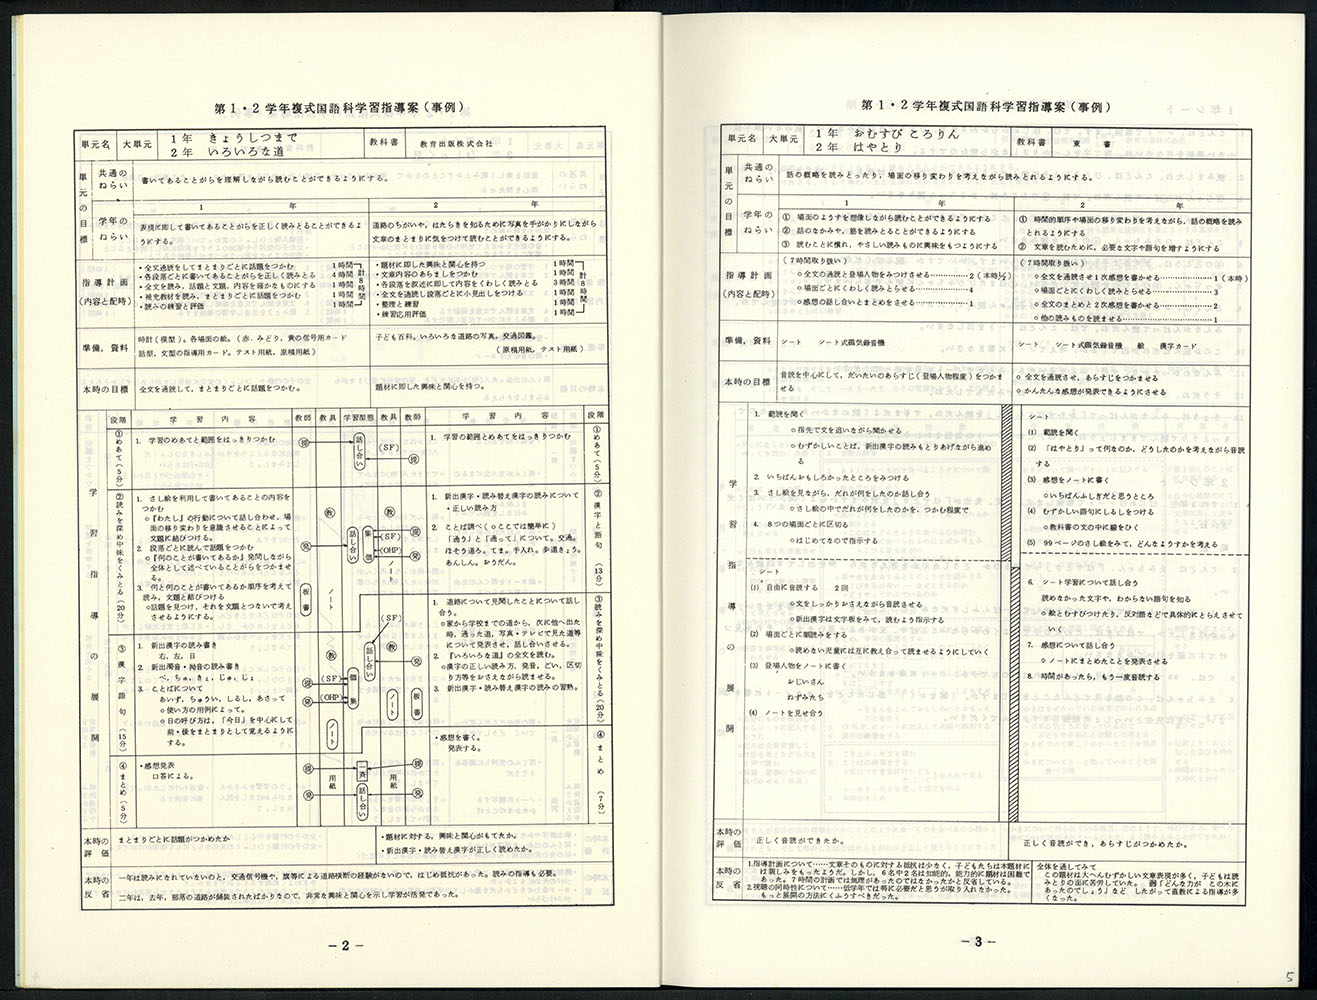 第1・2学年複式国語科学習指導案（事例）
単元名 大単元
1年 きょうしつまで
2年 いろいろな道
教科書 教育出版株式会社
単元の目標
共通のねらい
書いてあることがらを理解しながら読むことができるようにする。
学年のねらい
1 年
2 年
表現に即して書いてあることがらを正しく読みとることができるようにする。
道路のちがいや、はたらきを知るために写真を手がかりにしながら
文章のまとまりに気をつけて読むことができるようにする。
指導計画
（内容と配時）
・全文通読をしてまとまりごとに話題をつかむ 1時間
・各段落ごとに書いてあることがらを正しく読みとる 4時間
・全文を読み、話題と文題、内容を確かなものにする 1時間
・補充教材を読み、まとまりごとに話題をつかむ 1時間
・読みの練習と評価 1時間
計8時間
・題材に即した興味と関心を持つ 1時間
・文章内容のあらましをつかむ 1時間
・各段落を叙述に即して内容をくわしく読みとる 3時間
・全文を通読し段落ごとに小見出しをつける 1時間
・整理と練習 1時間
・練習応用評価 1時間
計8時間
準備，資料
時計（模型）。各場面の絵。（赤．みどり，黄の信号用カード
話型，文型の指導用カード。テスト用紙，原稿用紙）
子ども百科。いろいろな道路の写真。交通図鑑。
（原稿用紙，テスト用紙）
本時の目標
全文を通読して，まとまりごとに話題をつかむ。
題材に即した興味と関心を持つ。
学習指導の展開
段階 学習内容 教師 教具 学習型態 教具 教師 学習内容 段階
①めあて（5分）
1. 学習のめあてと範囲をはっきりつかむ
話し合い
(SF)
1. 学習の範囲とめあてをはっきりつかむ
①めあて（5分）
②読みを深め中味をくみとる（20分）
1. さし絵を利用して書いてあることの内容をつかむ
○『わたし』の行動について話し合わせ，場面の移り変わりを意識させることによって文題に結びつける。
2. 段落ごとに読んで話題をつかむ
○『何のことが書いてあるか』発問しながら全体として述べていることがらをつかませる。
3. 何と何のことが書いてあるか順序を考えて読み，文題と結びつける
○話題を見つけ，それを文題とつないで考えさせるようにする。
教
発
板書
ノート
話し合い
集
個
教
(SF)
(OHP)
ノート
1. 新出漢字・読み替え漢字の読みについて
・正しい読み方
2. ことば調べ（○ここでは簡単に）
「通り」と「通って」について。交通。
ほそう道ろ。てま。手入れ。歩道きょう。
あんしん。おうだん。
②漢字と語句（13分）
③漢字語句（15分）
1. 新出漢字の読み書き
右，左，日
2. 新出濁音・拗音の読み書き
べ，ちゅ，きょ，じゅ，じょ
3. ことばについて
あいず，ちゅうい，しるし，あさって
○使い方の用例によって。
○日の呼び方は，「今日」を中心にして前・後をまとまりとして覚えるようにする。
教
(SF)
(OHP)
ノート
個
集
話し合い
(SF)
教
ノート
板書
発
1. 道路について見聞したことについて話し合う。
○家から学校までの道から，次に他へ出た時，通った道，写真・テレビで見た道等について発表させ，話し合いさせる。
2. 『いろいろな道』の全文を読む。
○漢字の正しい読み方，発音，ごい，区切り方等をおさえながら読ませる。
3. 新出漢字・読み替え漢字の読みの習熟。
③読みを深め中味をくみとる（20分）
④まとめ（5分）
・感想発表
口答による。
発
用紙
一斉
話し合い
用紙
発
・感想を書く。
発表する。
④まとめ（7分）
本時の評価
まとまりごとに話題がつかめたか
・題材に対する，興味と関心がもてたか。
・新出漢字・読み替え漢字が正しく読めたか。
本時の反省
一年は読みになれていないのと，交通信号機や，旗等による道路横断の経験がないので，はじめ抵抗があった。読みの指導も必要。
二年は，去年，部落の道路が舗装されたばかりなので，非常な興味と関心を示し学習が活発であった。
－2－
第1・2学年複式国語科学習指導案（事例）
単元名 大単元
1年 おむすび ころりん
2年 はやとり
教科書 東書
単元の目標
共通のねらい
話の概略を読みとったり，場面の移り変わりを考えながら読みとれるようにする。
学年のねらい
1 年
2 年
① 場面のようすを想像しながら読むことができるようにする
② 話のなかみや，筋を読みとることができるようにする
③ 読むことに慣れ，やさしい読みものに興味をもつようにする
① 時間的順序や場面の移り変わりを考えながら，話の概略を読みとれるようにする
② 文章を読むために，必要な文字や語句を増すようにする
指導計画
（内容と配時）
（7時間取り扱い）
○全文の通読と登場人物をみつけさせる…………2（本時½）
○場面ごとにくわしく読みとらせる…………4
○感想の話し合いとまとめをさせる…………1
（7時間取り扱い）
○全文を通読させ1次感想を書かせる…………1（本時）
○場面ごとにくわしく読みとらせる…………3
○全文のまとめと2次感想を書かせる…………2
○他の読みものを読ませる…………1
準備，資料
シート シート式磁気録音機
シート シート式磁気録音機 絵 漢字カード
本時の目標
音読を中心にして，だいたいのあらすじ（登場人物程度）をつかませる
○全文を通読させ，あらすじをつかませる
○かんたんな感想が発表できるようにさせる
学習指導の展開
1. 範読を聞く
○指先で文を追いながら聞かせる
○むずかしいことば，新出漢字の読みもとりあげながら進める
2. いちばんおもしろかったところをみつける
3. さし絵を見ながら，だれが何をしたのか話し合う
○さし絵の中でだれが何をしたのかを，つかむ程度で
4. 8つの場面ごとに区切る
○はじめてなので指示する
シート
(1) 自由に音読する 2回
○文をしっかりおさえながら音読させる
○新出漢字は文字板をみて，読むよう指示する
(2) 場面ごとに順読みをする
○読めない児童には互に教え合って読ませるようにしていく
(3) 登場人物をノートに書く
おじいさん
ねずみたち
(4) ノートを見せ合う
シート
(1) 範読を聞く
(2) 「はやとり」って何なのか，どうしたのかを考えながら音読する
(3) 感想をノートに書く
○いちばんふしぎだと思うところ
(4) むずかしい語句にしるしをつける
○教科書の文の中に線をひく
(5) 99ページのさし絵をみて，どんなようすかを考える
6. シート学習について話し合う
読めなかった文字や，わからない語句を知る
○絵とむすびつけたり，反対語などで具体的にとらえさせていく
7. 感想について話し合う
○ノートにまとめたことを発表させる
8. 時間があったら，もう一度音読する
本時の評価
正しく音読ができたか。
正しく音読ができ，あらすじがつかめたか。
本時の反省
1.指導計画について……文章そのものに対する抵抗は少なく，子どもたちは本題材には親しみをもったようだ。しかし，6名中2名は知能的，能力的に題材は困難であった。7時間の計画では無理があったのではなかったかと反省している。
2.視聴の同時性について……低学年では特に必要だと思うが取り入れなかった。もっと展開の方法にくふうすべきだった。
全体を通してみて
この題材は大へんむずかしい文章表現が多く，子どもは読みとりの面に苦労していた。 例「どんな力が この木にあったのでしょう」など したがって直教による指導が多くなった。
－3－
5